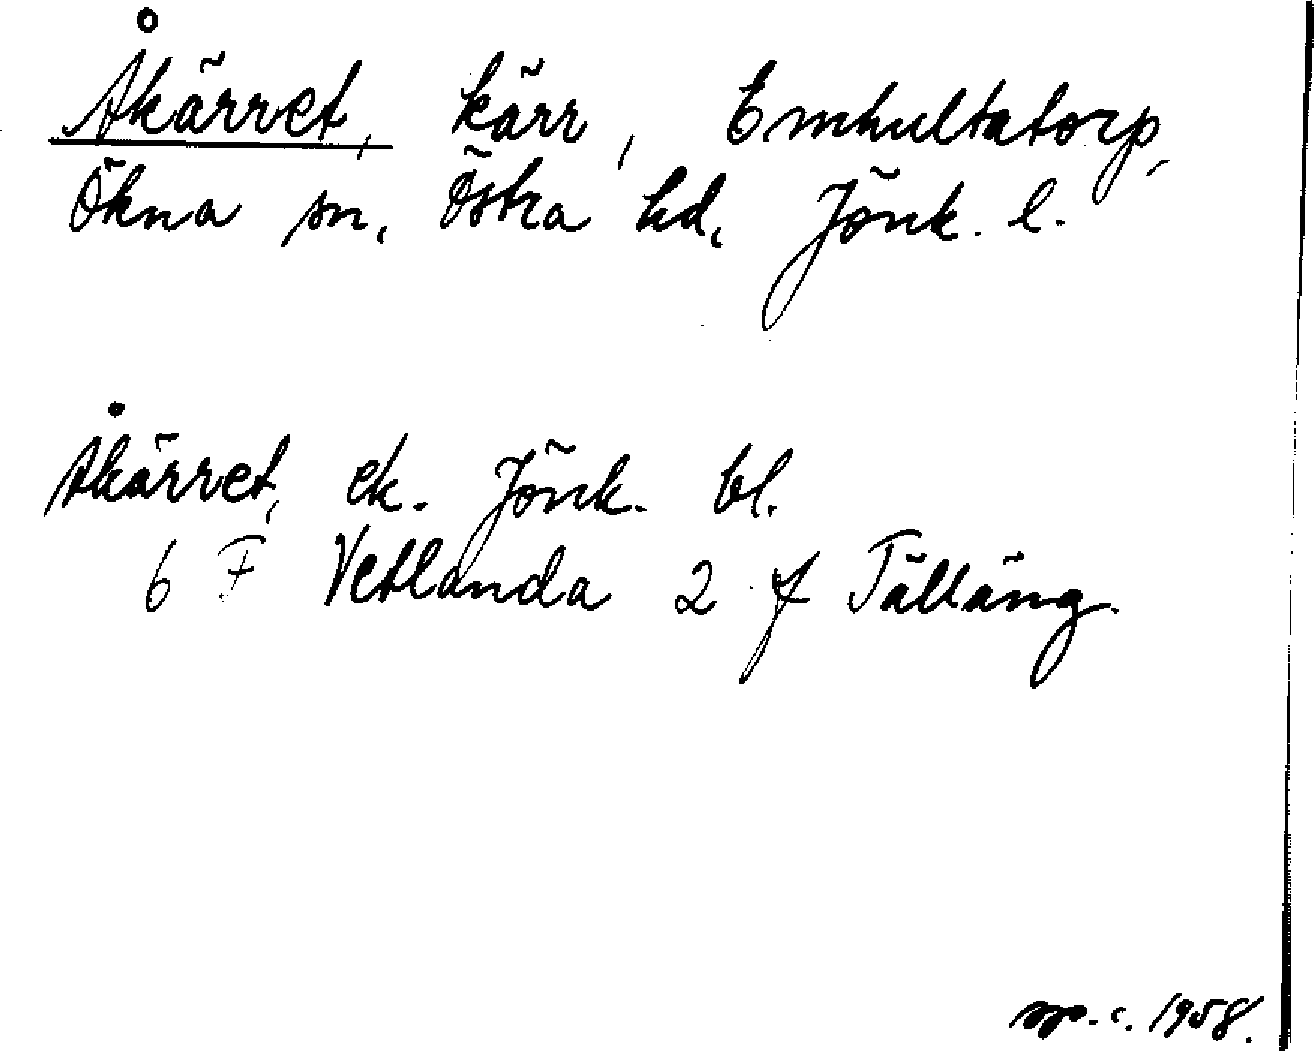 Åkärret, kärr, Emhultatorp,
Ökna sn, Östra hd, Jönk. l.
Åkärret, ek. Jönk. bl.
6 F Vetlanda 2 f Tälläng.
1958.